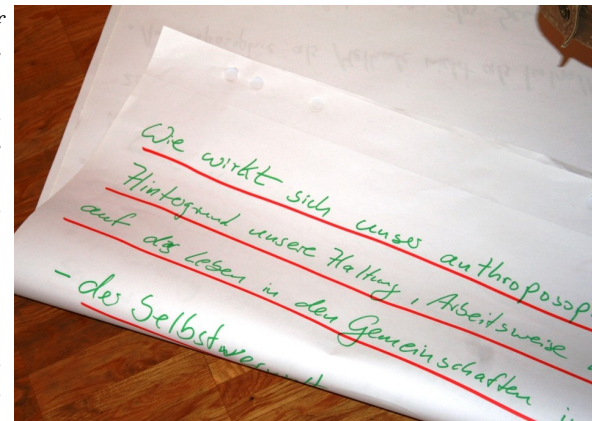 Wie wirkt sich unser anthroposop
Hintergrund unsere Haltung, Arbeitsweise
auf das Leben in den Gemeinschaften i
- des Selbstverwalt